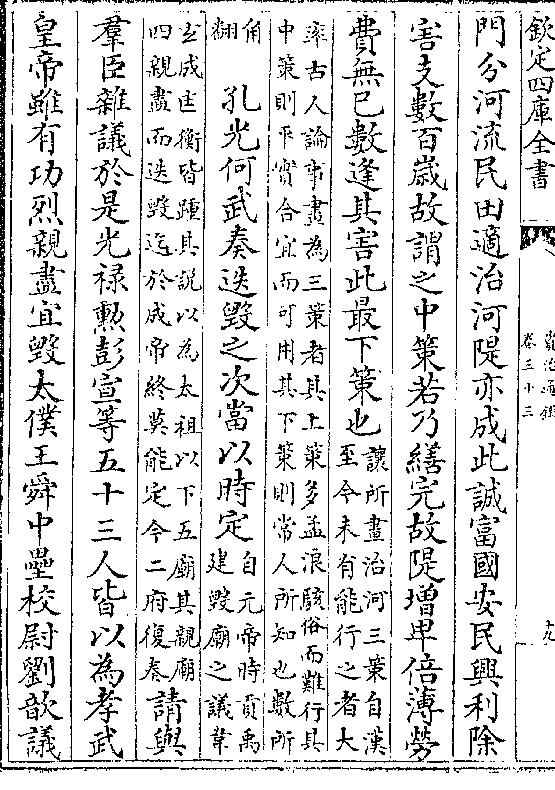 欽定四庫全書
資治通鑑
卷三十三
十九
門分河流民田適治河隄亦成此誠富國安民興利除
害支數百歲故謂之中策若乃繕完故隄增卑倍薄勞
費無已數逢其害此最下策也
讓所畫治河三策自漢
至今未有能行之者大
率古人論事畫為三策者其上策多孟浪駭俗而難行其
中策則平實合宜而可用其下策則常人所知也數所
角
翻
孔光何武奏迭毀之次當以時定
自元帝時貢禹
建毀廟之議韋
玄成匡衡皆踵其說以為太祖以下五廟其親廟
四親盡而迭毀迄於成帝終莫能定今二府復奏
請與
羣臣雜議於是光祿勲彭宣等五十三人皆以為孝武
皇帝雖有功烈親盡宜毀太僕王舜中壘校尉劉歆議